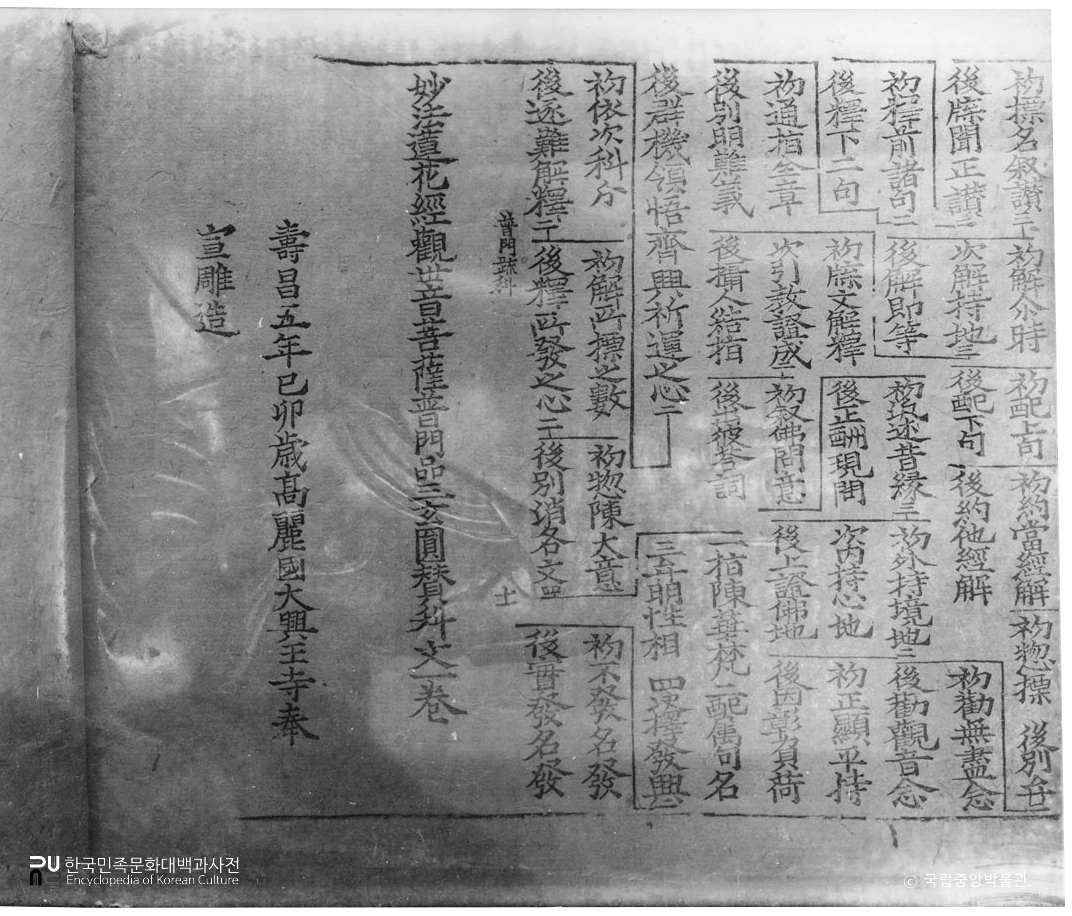 初標名叙讃二 初解尒時 初配上句 初約當經解 初惣摽 後別弁二
後牒聞正讃三 次解持地三 後配下句 後約他經解 初勸無盡念
初釋前諸句二 後解即等 初汎述昔縁三 初外持境地二 後勸觀音念
後釋下二句 初牒文解釋 後正酬現問 次內持心地 初正顯平持
初通指全章 次引教證成二 初叙佛問意 後上證佛地 後因彰負荷
後別明難義 後攝人結指 後出彼答詞 一指陳華梵 二配儁句名
後群機領悟齊興祈運之心二 三弁明性相 四決擇發興二
初依次科分 初解所摽之數 初惣陳大意 初不發名發
後逐難解釋二 後釋所發之心二 後別消名文四 後實發名發
普門疏科 十一
妙法蓮花經觀世音菩薩普門品三玄圓賛科文一卷
壽昌五年己卯歳髙麗國大興王寺奉
宣雕造
한국민족문화대백과사전
Encyclopedia of Korean Culture
© 국립중앙박물관